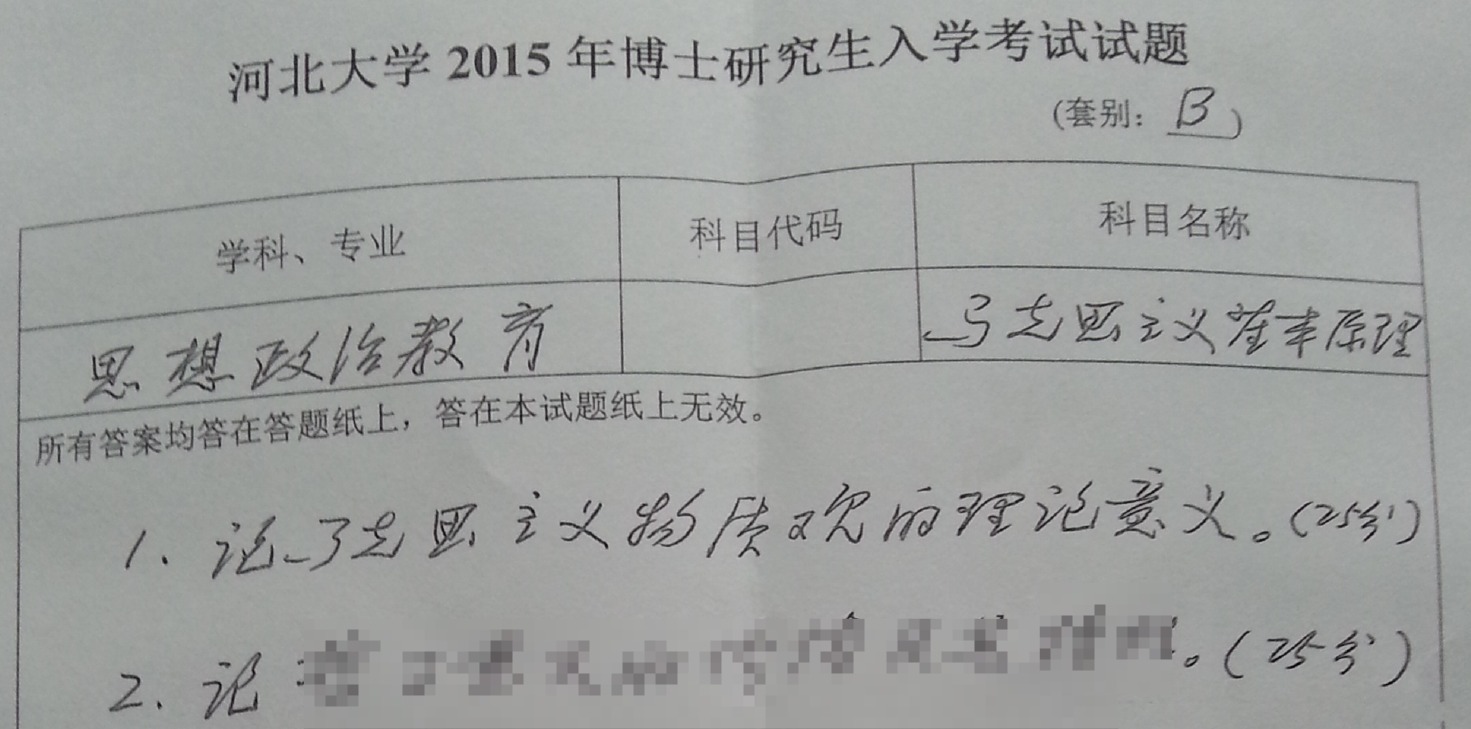 河北大学2015年博士研究生入学考试试题
(套别: B)
学科、专业 科目代码 科目名称
思想政治教育 马克思主义基本原理
所有答案均答在答题纸上，答在本试题纸上无效。
1. 论马克思主义物质观的理论意义。(25分)
2. 论 。(25分)